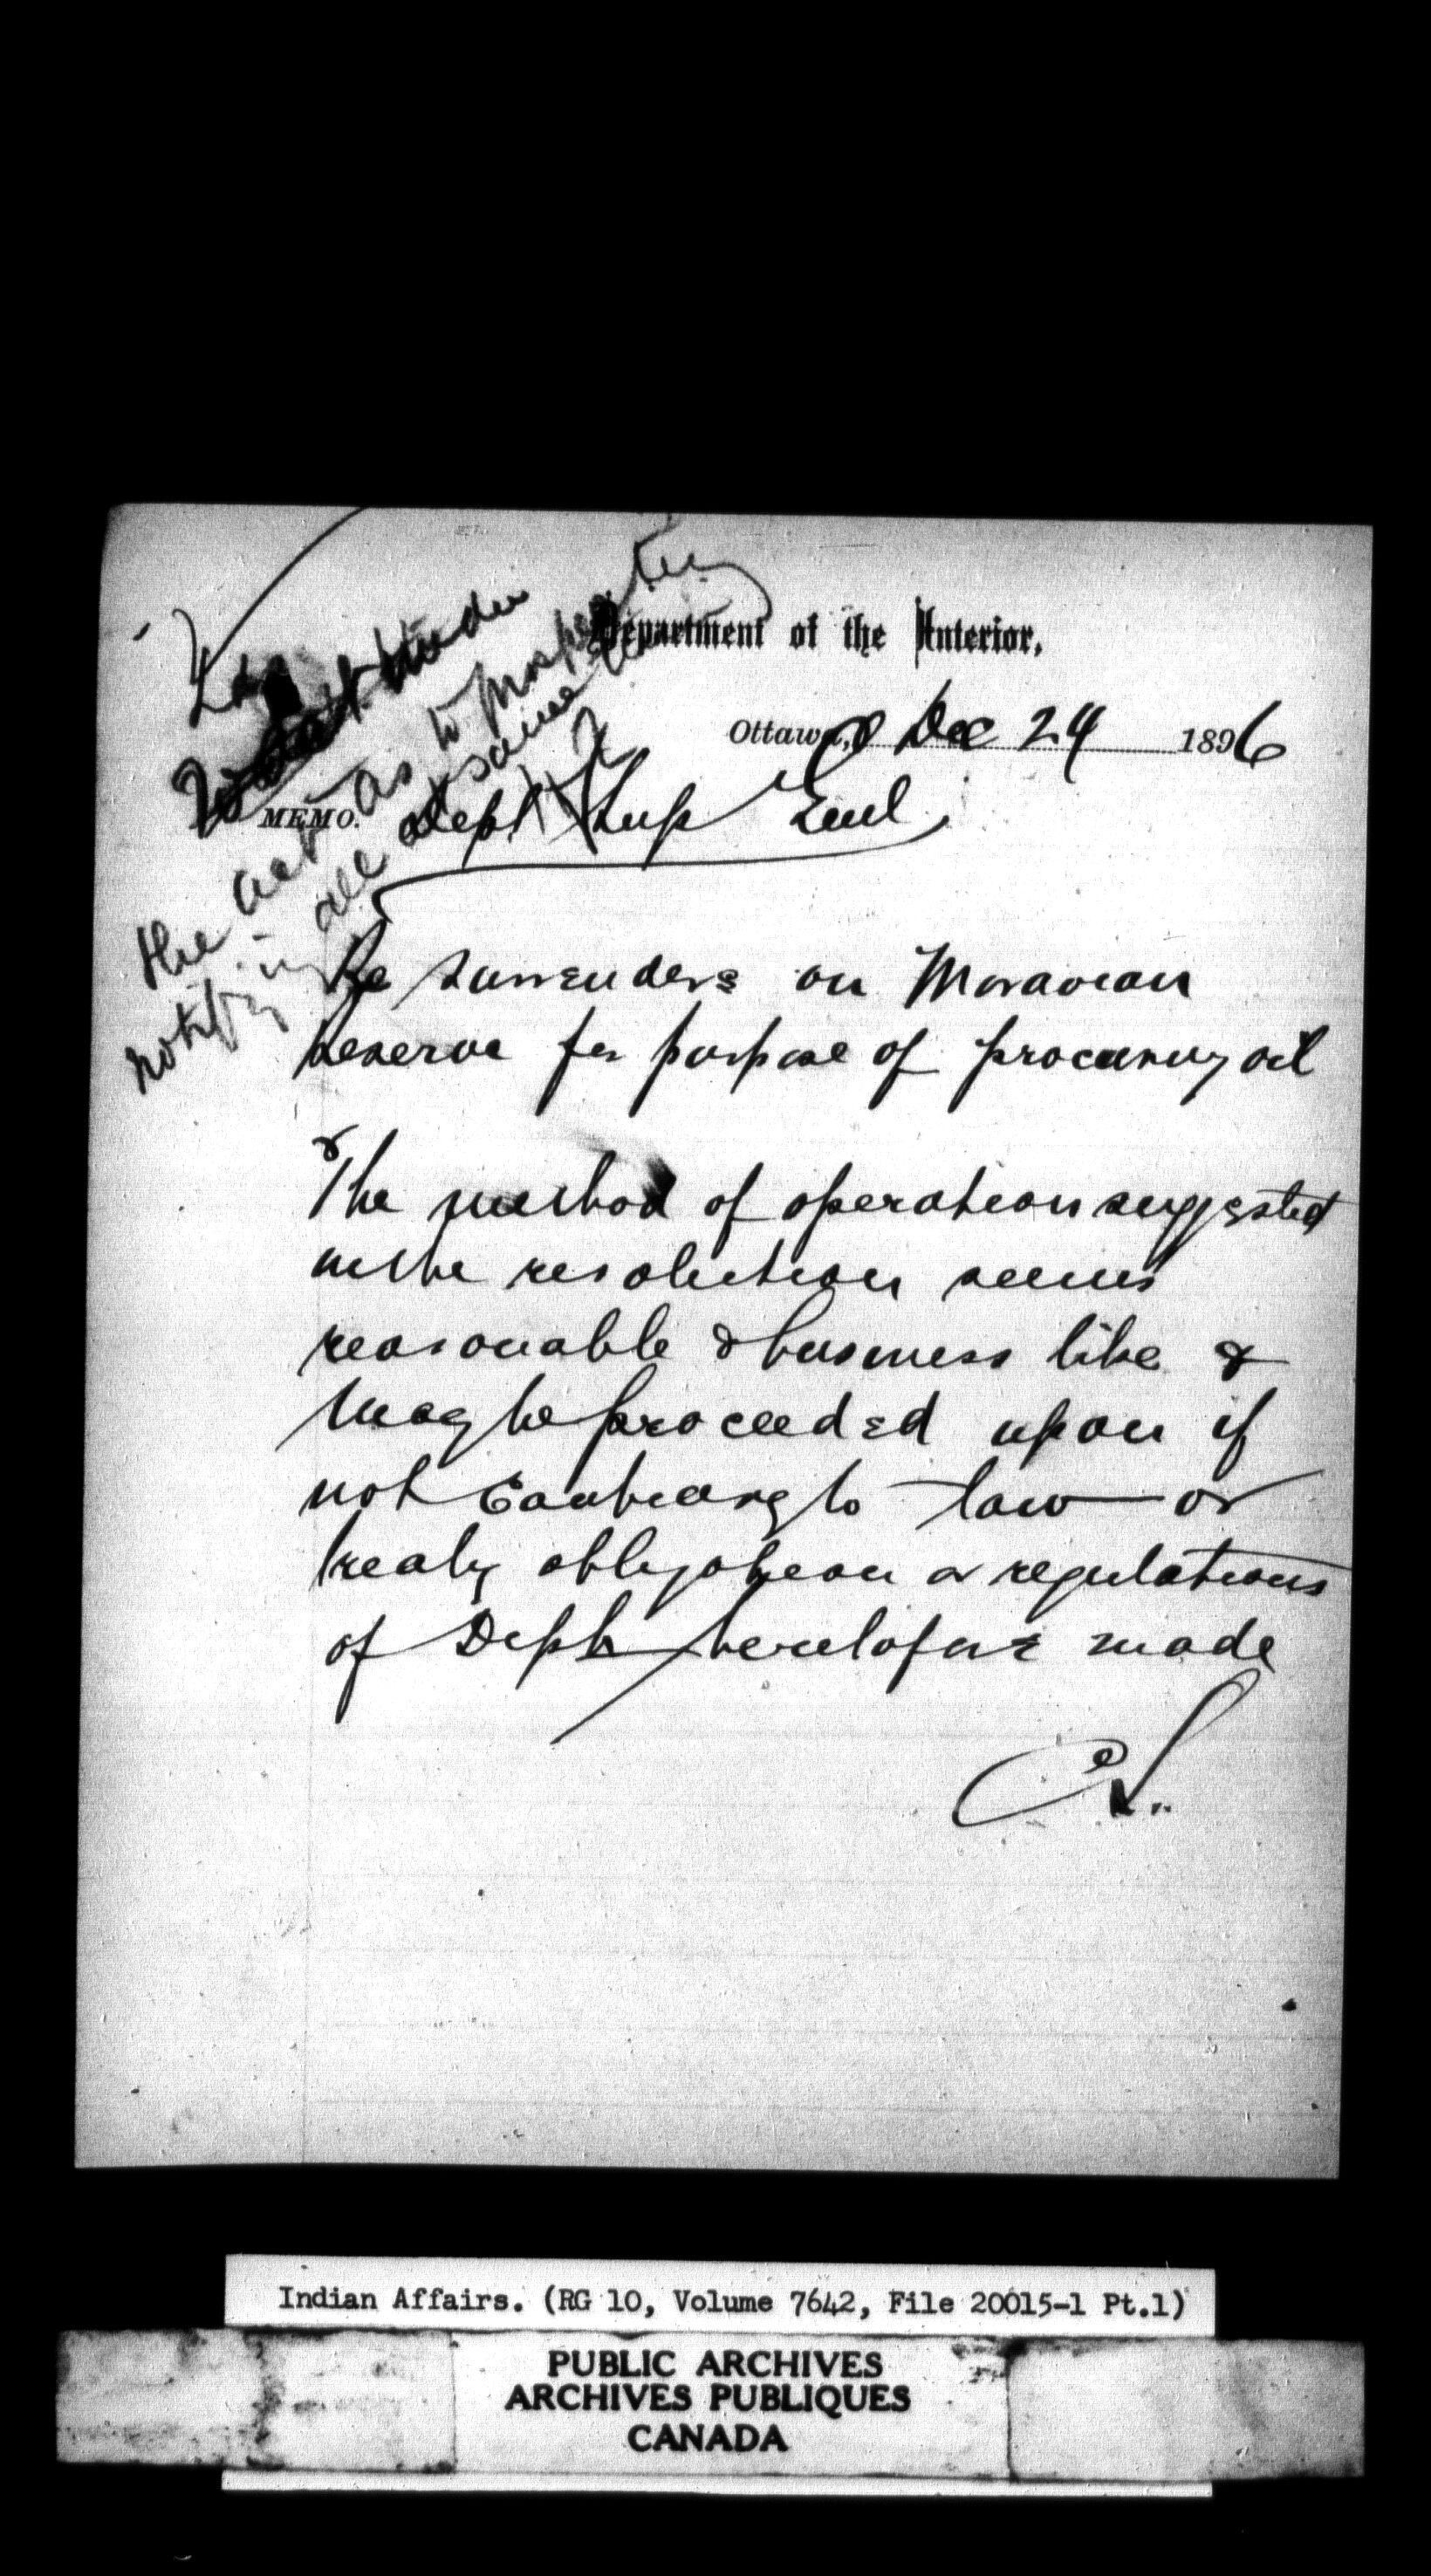 Department of the Interior,
Ottawa, Dec 24 1896
MEMO.
Dept Sup Genl
the act as to prospecting
notifying all
same
Re surrenders on Moravian
Reserve for purpose of procuring oil
The method of operation suggested
in the resolution seems
reasonable & business like &
may be proceeded upon if
not contrary to law or
treaty obligation or regulations
of Dept heretofore made
Indian Affairs. (RG 10, Volume 7642, File 20015-1 Pt.1)
PUBLIC ARCHIVES
ARCHIVES PUBLIQUES
CANADA